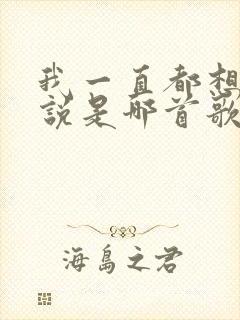 我一直都想
說是哪首歌
海島之君